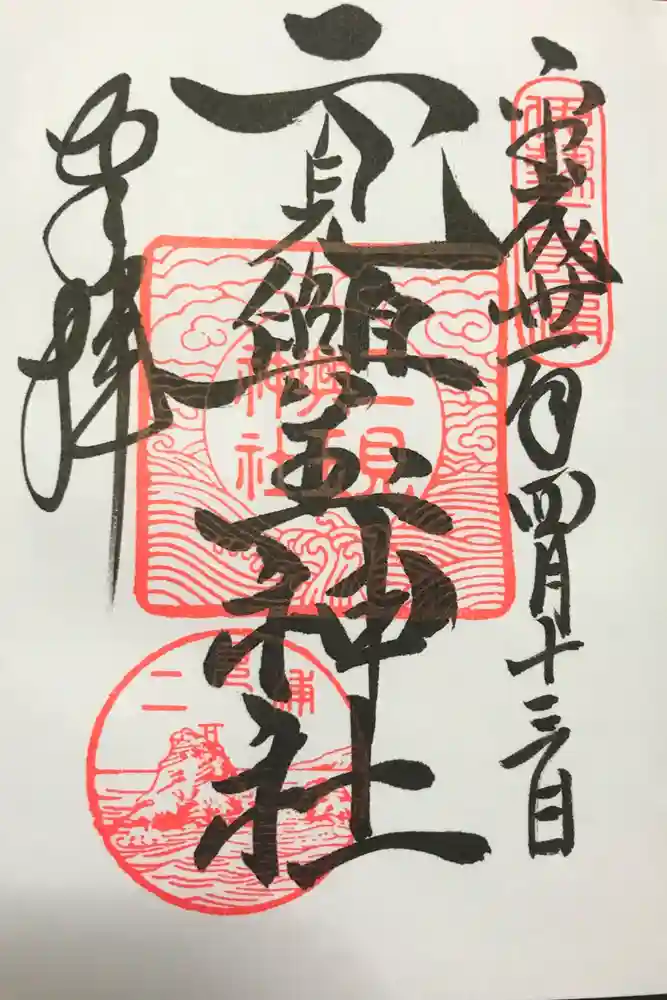 平成丗一年四月十三日
二見興玉神社
奉拝
二見
興玉
神社
二見浦